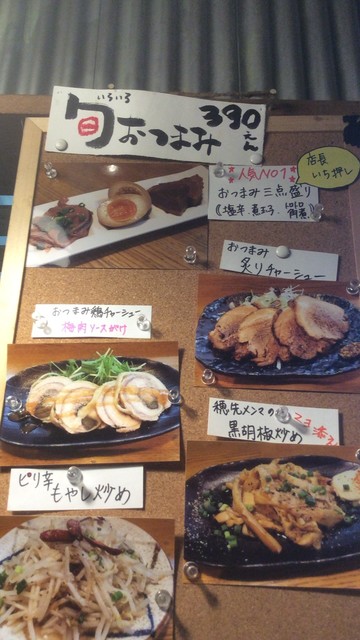 いろいろ
旬おつまみ 390えん
☆人気NO1☆
おつまみ三点盛り
(塩辛、煮玉子、トロトロ角煮)
店長
いち押し
おつまみ
炙りチャーシュー
おつまみ鶏チャーシュー
梅肉ソースがけ
穂先メンマの
黒胡椒炒め
マヨ添え
ピリ辛
もやし炒め